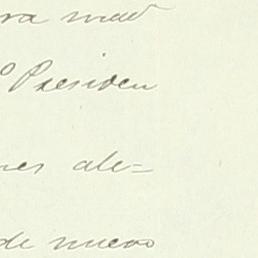 ra mad
o Presiden
nes ale=
de nuevo